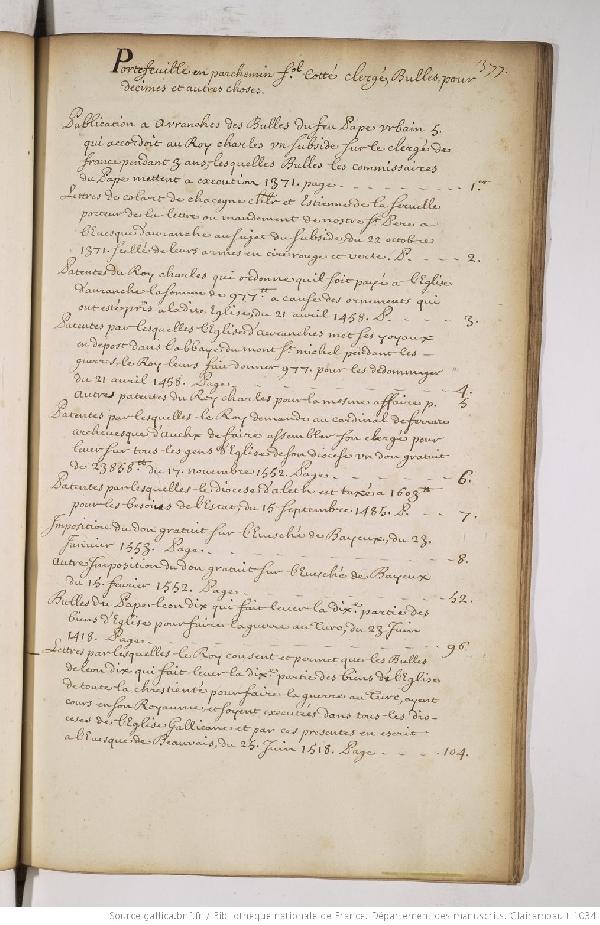 377.
Portefeuille en parchemin fol. Cotté clergé, Bulles, pour
decimes et autres choses.
Publication a Avranches des Bulles du feu Pape urbain 5.
qui accordoit au Roy charles un subside sur le clergé de
france pendant 3 ans, lesquelles Bulles les commissaires
du Pape mettent a execution 1371. page 1.re
Lettres de colart de chacegne chlr et Estienne de la
porteur de la lettre ou mandement de nostre St. Pere a
l'Evesque d'avranche au sujet du subside, du 22 octobre
1371. sellé de leurs armes en cire rouge et verte. P. 2.
Patentes du Roy charles qui ordonne qu'il soit payé a l'Eglise
d'avranche la somme de 977.tt a cause des ornements qui
ont esté pris a la dite Eglise, du 21 avril 1458. P. 3.
Patentes par lesquelles l'Eglise d'avranches met ses joyaux
en depost dans l'abbaye du mont St. michel pendant les
guerres, le Roy leurs fait donner 977. pour les dedommager
du 21 avril 1458. Page. 4.
Autres patentes du Roy charles pour la mesme affaire p. 5
Patentes par lesquelles le Roy demande au cardinal de ferrare
archevesque d'auchx de faire assembler son clergé pour
lever sur tous les gens d'Eglise de son diocese un don gratuit
de 23868.tt du 17. novembre 1552. Page. 6.
Patentes par lesquelles le diocese d'aleth est taxé a 1603.tt
pour les besoins de l'Estat, du 15 septembre 1485. P. 7.
Imposition du don gratuit sur l'Evesché de Bayeux, du 23.
Janvier 1553. Page. 8.
Autre Imposition du don gratuit sur l'Evesché de Bayeux
du 15. fevrier 1552. Page. 52.
Bulles du Pape leon dix qui fait lever la dix.e partie des
biens d'Eglise pour faire la guerre au turc, du 23 Juin
1418. Page. 96
Lettres par lesquelles le Roy consent et permet que les Bulles
de leon dix qui fait lever la dix.e partie des biens de l'Eglise
de toute la chrestienté pour faire la guerre au turc, ayent
cours en son Royaume, et soyent executées dans tous les dio-
ceses de l'Eglise Gallicane et par ces presentes en escrit
a l'Evesque de Beauvais, du 25. Juin 1518. Page 104.
Source gallica.bnf.fr / Bibliothèque nationale de France. Département des manuscrits. Clairambault 1034